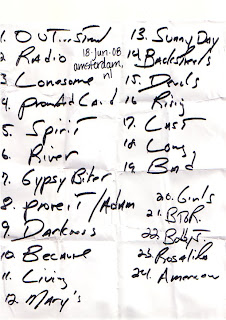 1. OUT...STREET
2. Radio
18.jun.08
amsterdam,
nl
3. Lonesome
4. Promised Land
5. Spirit
6. River
7. Gypsy Biker
8. Prove it / Adam
9. Darkness
10. Because
11. Living
12. Mary's
13. Sunny Day
14. Backstreets
15. Devils
16. Rising
17. Last
18. Long
19. Bad
20. Girls
21. BTR.
22. Bobby J.
23. Rosalita
24. American